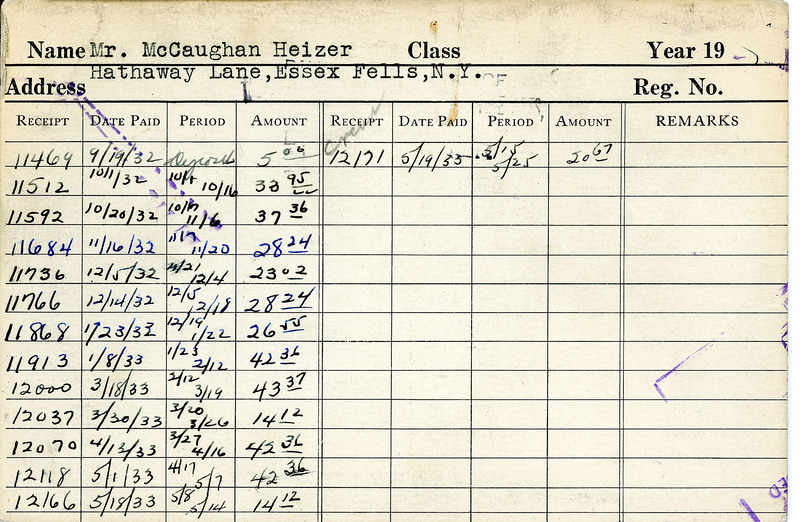 Name Mr. McCaughan Heizer Class Year 19
Address Hathaway Lane,Essex Fells,N.Y. Reg. No.
RECEIPT DATE PAID PERIOD AMOUNT RECEIPT DATE PAID PERIOD AMOUNT REMARKS
11469 9/19/32 Deposit 5 00 12171 5/19/33 5/15 5/25 20 67
11512 10/1/32 10/1 10/16 33 95
11592 10/20/32 10/17 11/6 37 36
11684 11/16/32 11/7 11/20 28 24
11736 12/5/32 11/21 12/4 23 02
11766 12/14/32 12/5 12/18 28 24
11868 1/23/33 12/19 1/22 26 55
11913 1/8/33 1/23 2/12 42 36
12000 3/18/33 2/12 3/19 43 37
12037 3/30/33 3/20 3/26 14 12
12070 4/13/33 3/27 4/16 42 36
12118 5/1/33 4/17 5/7 42 36
12166 5/18/33 5/8 5/14 14 12